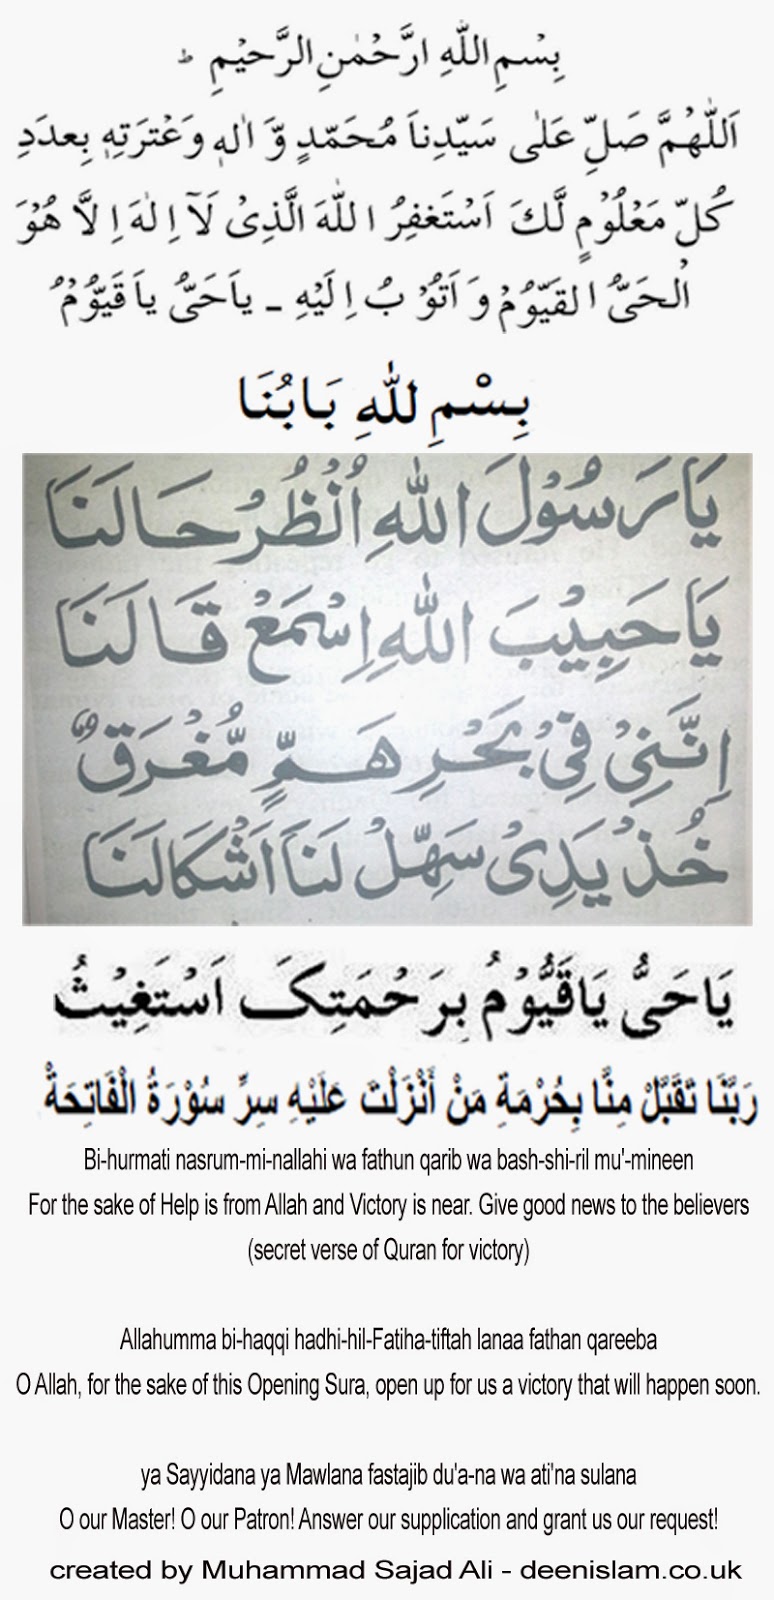 بِسْمِ اللّٰهِ ارَّحْمٰنِ الرَّحِيْمِ ؕ
اَللّٰهُمَّ صَلِّ عَلٰى سَيِّدِناَ مُحَمَّدٍ وَّ اٰلهٖ وَعْتَرَتِهٖ بِعدَدِ
كُلِّ مَعْلُوْمٍ لَّكَ اَسْتَغفِرُ اللّٰهَ الَّذِىْ لَآ اِلٰهَ اِلَّا هُوَ
اْلحَىُّ القَيّوُمْ وَ اَتُوْ بُ اِلَيْهِ ـ ياَحَىُّ ياَقَيّوُمُ
بِسْمِ للّٰهِ بَابُنَا
يَا رَسُوْلَ اللّٰهِ اُنْظُرْ حَالَنَا
يَا حَبِيْبَ اللّٰهِ اِسْمَعْ قَالَنَا
اِنَّنِىْ فِىْ بَحْرِ هَمٍّ مُّغْرَقٌ
خُذْ يَدِىْ سَهِّلْ لَنَا اَشْكَالَنَا
يَاحَىُّ يَاقَيُّوْمُ بِرَحْمَتِكَ اَسْتَغِيْثُ
رَبَّنَا تَقَبَّلْ مِنَّا بِحُرْمَةِ مَنْ أَنْزَلْتَ عَلَيْهِ سِرِّ سُوْرَةُ الْفَاتِحَةْ
Bi-hurmati nasrum-mi-nallahi wa fathun qarib wa bash-shi-ril mu'-mineen
For the sake of Help is from Allah and Victory is near. Give good news to the believers
(secret verse of Quran for victory)
Allahumma bi-haqqi hadhi-hil-Fatiha-tiftah lanaa fathan qareeba
O Allah, for the sake of this Opening Sura, open up for us a victory that will happen soon.
ya Sayyidana ya Mawlana fastajib du'a-na wa ati'na sulana
O our Master! O our Patron! Answer our supplication and grant us our request!
created by Muhammad Sajad Ali - deenislam.co.uk